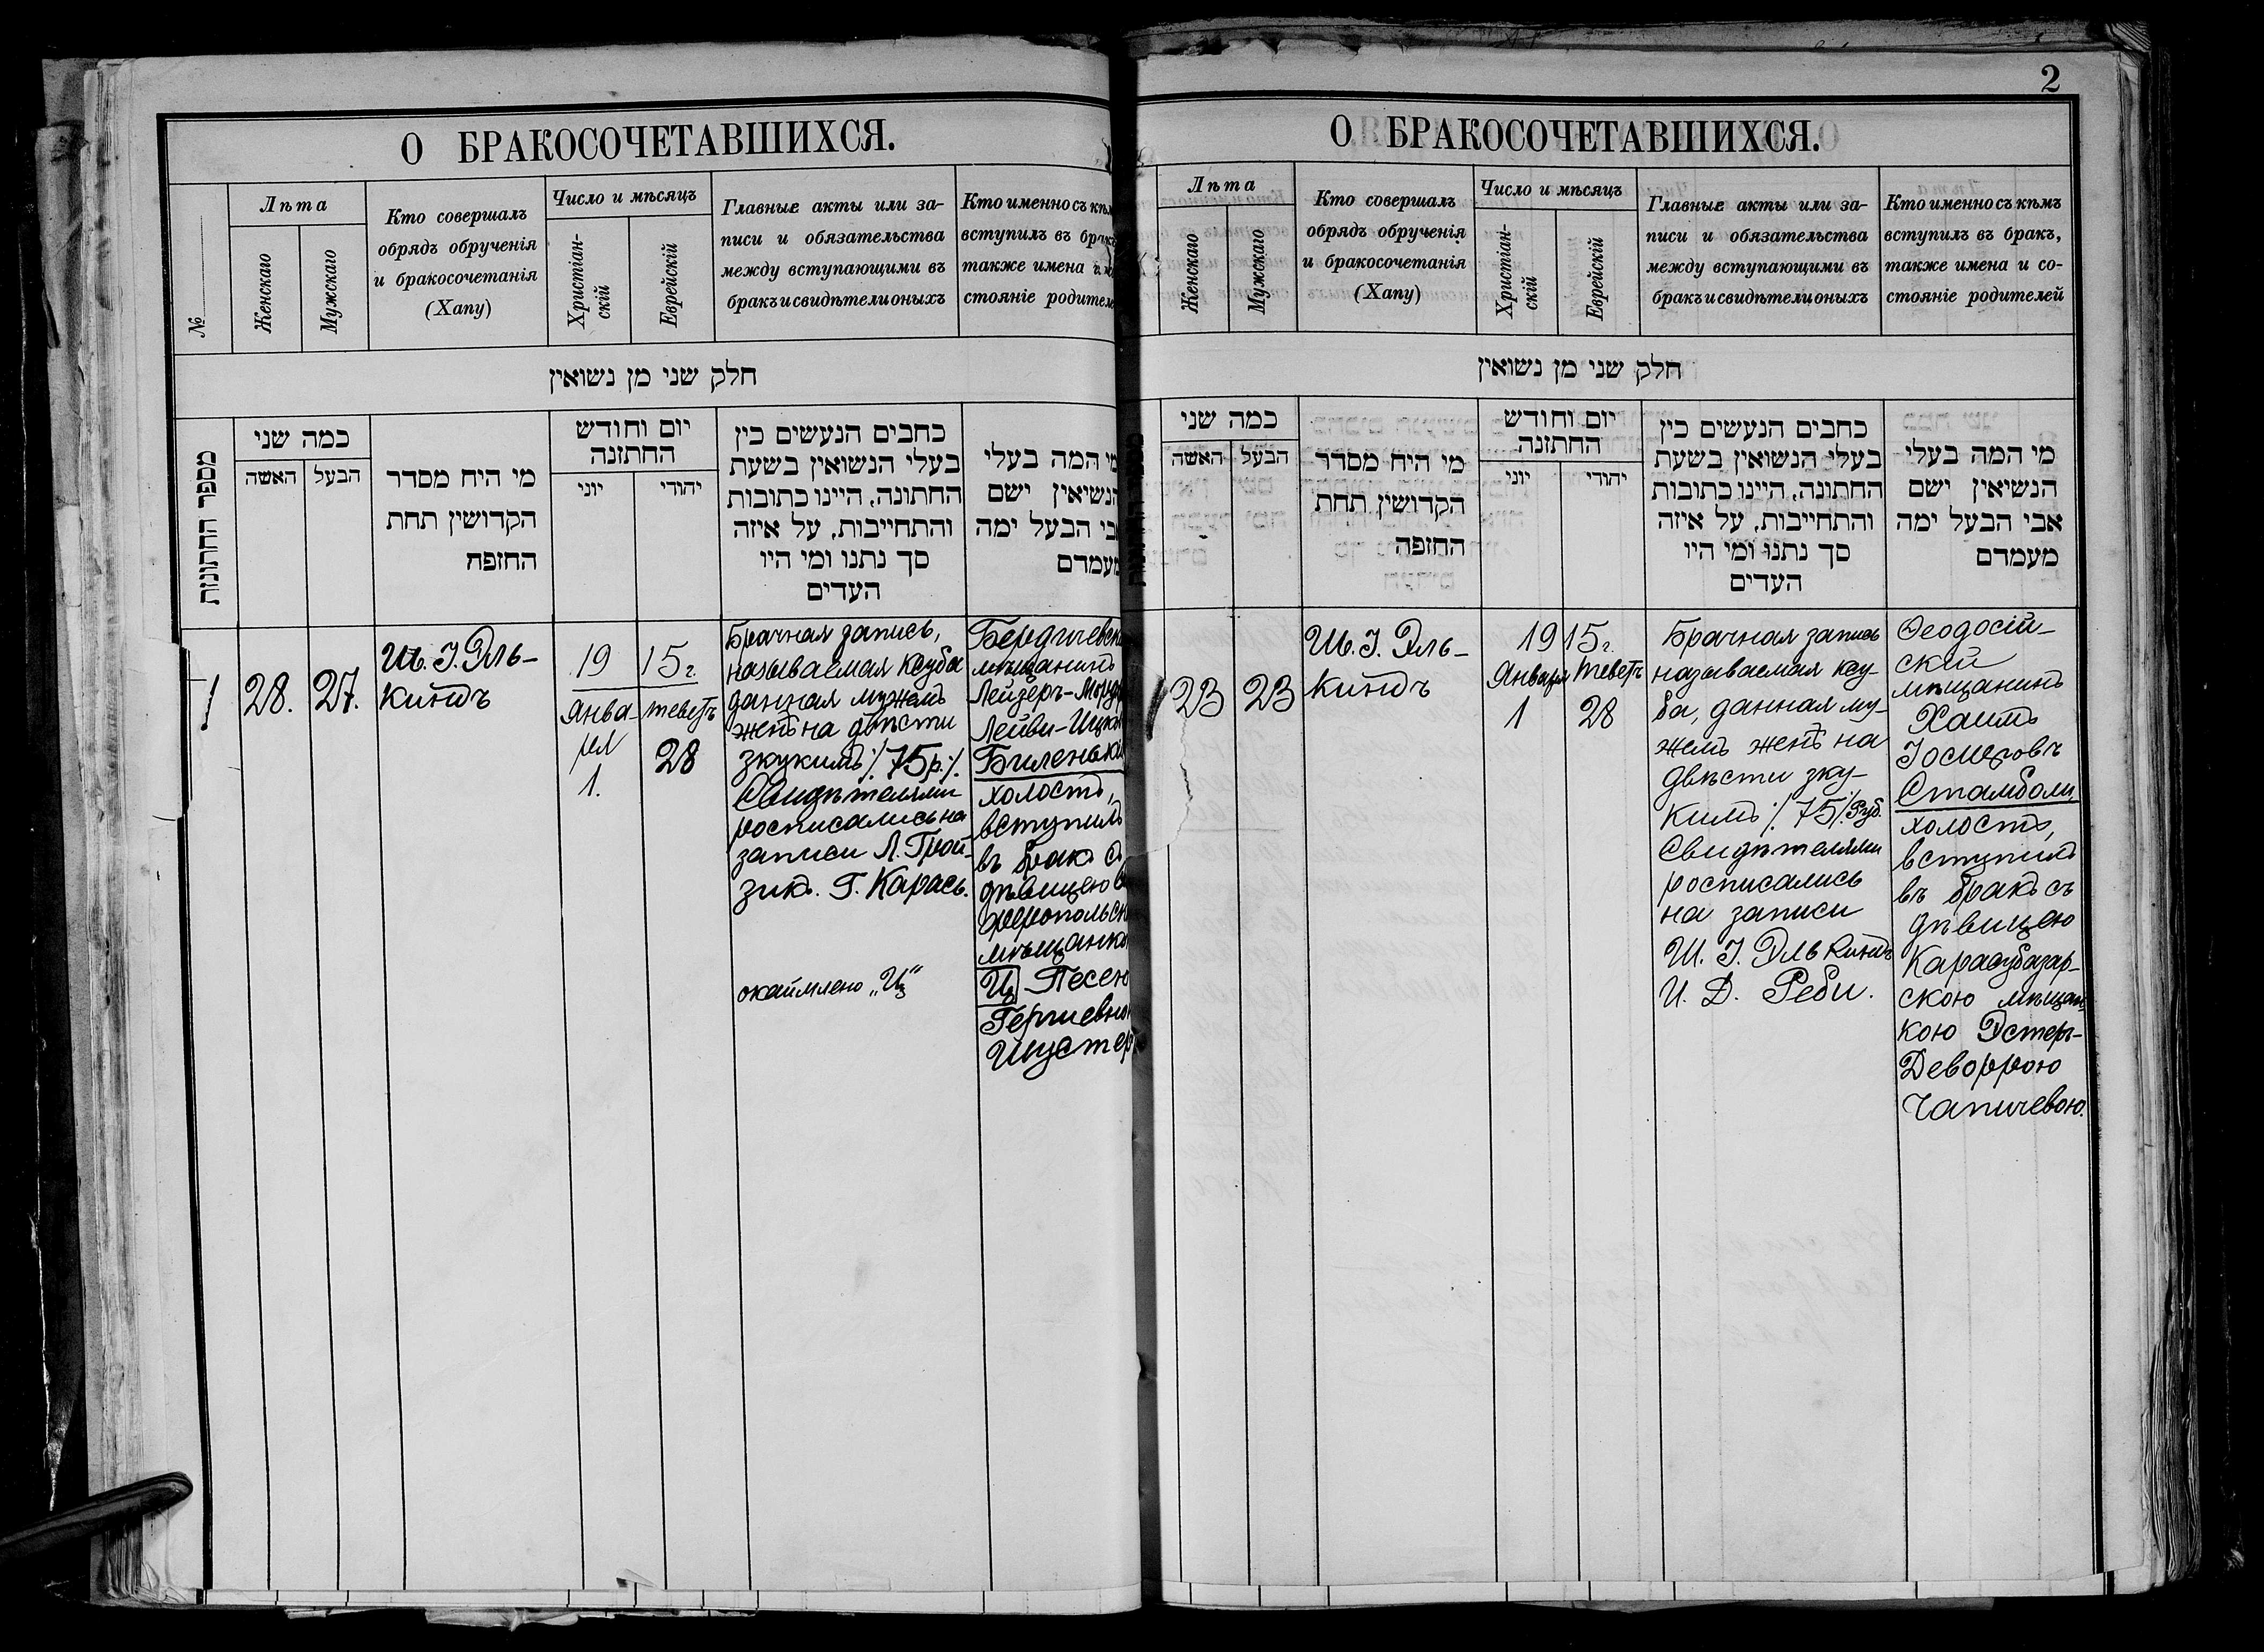 О БРАКОСОЧЕТАВШИХСЯ.
№
Лѣта
Женскаго
Мужскаго
Кто совершалъ
обрядъ обрученія
и бракосочетанія
(Хапу)
Число и мѣсяцъ
Христіан-
скій
Еврейскій
Главные акты или за-
писи и обязательства
между вступающими въ
бракъ и свидѣтели оныхъ
Кто именно съ кѣмъ
вступилъ въ бракъ
также имена и
стояніе родителе
חלק שני מן נשואין
מספר החתונות
כמה שני
האשה
הבעל
מי היח מסדר
הקדושין תחת
החזפח
יום וחודש
החתזנה
יוני
יהודי
כחבים הנעשים כין
בעלי הנשואין בשעת
החתונה, היינו כתובות
והתחייבות, על איזה
סך נתנו ומי היו
העדים
מי המה בעלי
הנשיאין ישם
אבי הבעל ימה
מעמדם
1
28.
27.
Ш. І. Эль-
киндъ
1915 г.
Янва-
ря
1.
теветъ
28
Брачная запись,
называемая ксуба
данная мужемъ
женѣ на двѣсти
зкукимъ ·/. 75 р. ·/.
Свидѣтелями
росписались на
записи Л. Грой-
зикъ. Г. Карась.
окаймлено „Ц“
Бердичевск
мѣщанинъ
Лейзеръ-Морд
Лейви-Ицко
Биленьк
холостъ,
вступилъ
въ бракъ съ
дѣвицею
жеропольск
мѣщанко
Ц Песею
Гершевно
Шустер
2
О БРАКОСОЧЕТАВШИХСЯ.
Лѣта
Женскаго
Мужскаго
Кто совершалъ
обрядъ обрученія
и бракосочетанія
(Хапу)
Число и мѣсяцъ
Христіан-
скій
Еврейскій
Главные акты или за-
писи и обязательства
между вступающими въ
бракъ и свидѣтели оныхъ
Кто именно съ кѣмъ
вступилъ въ бракъ,
также имена и со-
стояніе родителей
חלק שני מן נשואין
כמה שני
האשה
הבעל
מי היח מסדר
הקדושין תחת
החזפה
יום וחודש
החתזנה
יוני
יהודי
כחבים הנעשים כין
בעלי הנשואין בשעת
החתונה, היינו כתובות
והתחייבות, על איזה
סך נתנו ומי היו
העדים
מי המה בעלי
הנשיאין ישם
אבי הבעל ימה
מעמדם
23
23
Ш. І. Эль-
киндъ
1915 г.
Января
1
теветъ
28
Брачная запись
называемая ксу-
ба, данная му-
жемъ женѣ на
двѣсти зку-
кимъ ·/. 75 ·/. Руб.
Свидѣтелями
росписались
на записи
Ш. І. Элькиндъ
И. Д. Реби.
Ѳеодосій-
скій
мѣщанинъ
Хаимъ
Іосифовъ
Стамболи,
холостъ,
вступилъ
въ бракъ съ
дѣвицею
Карасубазар-
скою мѣщан-
кою Эстеръ-
Деворрою
Чапичевою.